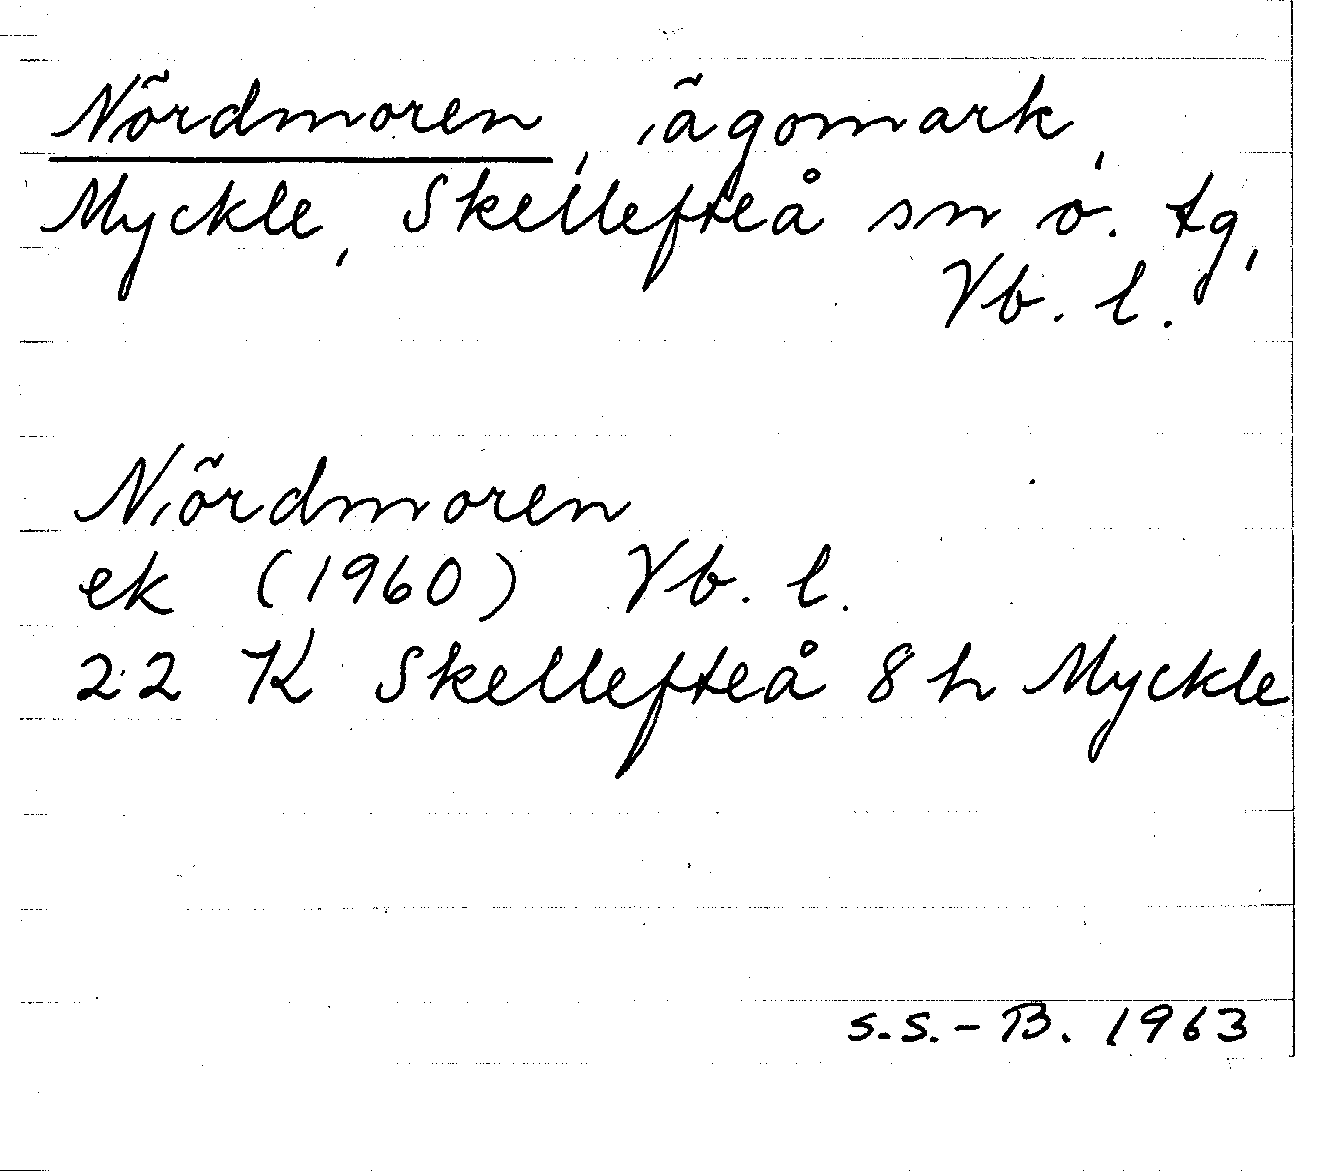 Nördmoren, ägomark,
Myckle, Skellefteå sn o. tg,
Vb. l.
Nördmoren
ek (1960) Vb. l.
22 K Skellefteå 8 h Myckle
S.S.-B. 1963